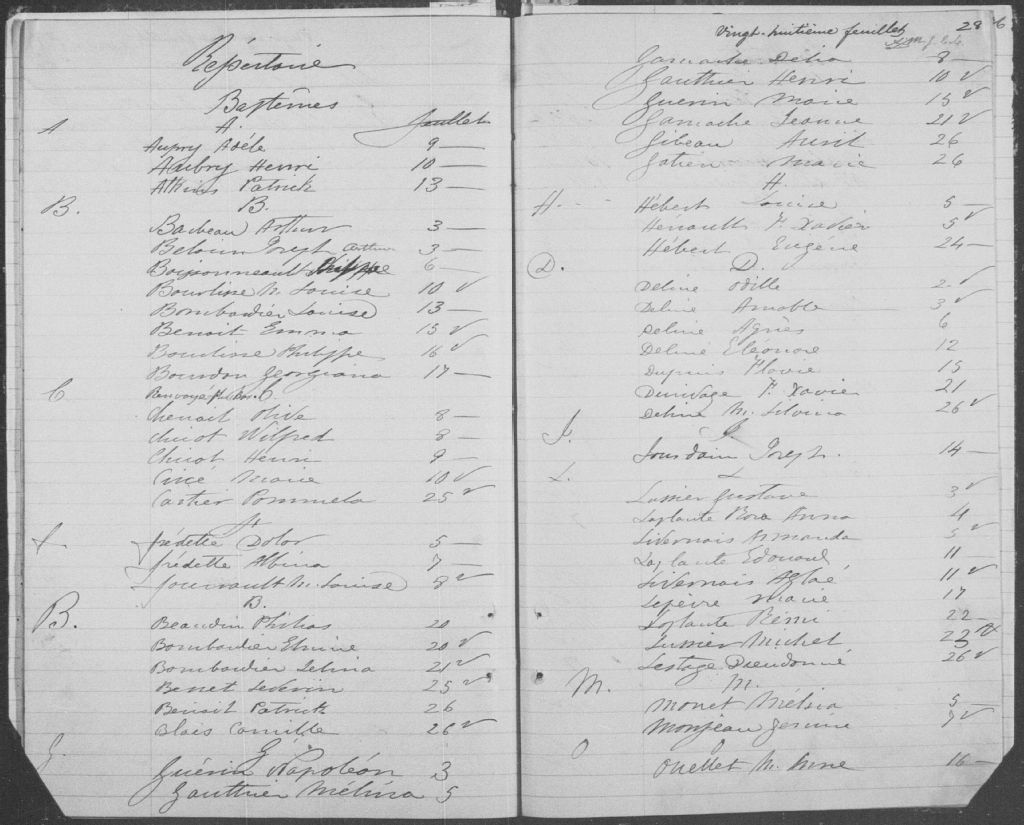 Répertoire
Baptêmes
feuillet
A A.
Aupry Adèle 9 —
Aubry Henri 10 —
Atkins Patrick 13 —
B. B.
Barbeau Arthur 3 —
Beloin Joseph Arthur 3 —
Boissonneault Philippe 6 —
Bourdisse M. Louise 10 v
Bombardier Louise 13 —
Benoit Emma 15 v
Bourdisse Philippe 16 v
Bourdon Georgiana 17 —
C C.
Benoit Olive 8 —
Chicot Wilfred 8 —
Chicot Henri 9 —
Cincé Marie 10 v
Cartier Pommela 25 v
F
Frédette Dolor 5 —
Frédette Albina 7 —
Fournault M. Louise 8 v
B. B.
Beaudin Philias 20
Bombardier Elmire 20 v
Bombardier Delina 21 v
Benet Séverin 25 v
Benoit Patrick 26
Blais Camille 26 v
G. G
Guérin Napoléon 3
Gauthier Mélina 5
Vingt-huitième feuillet 28
Gamache Délia 8 —
Gauthier Henri 10 v
Guérin Marie 15 v
Gamache Jeanne 21 v
Gibeau 26
Gatien Marie 26
H. H.
Hébert Louise 5 —
Hénault F. Xavier 5 v
Hébert Eugène 24 —
D. D.
Deline Odille 2 v
Deline Amable 3 v
Deline Agnès 6
Deline Eléonore 12
Dupuis Flavie 15
F. Xavier 21
Deline M. Silvina 26 v
J. J.
Jourdain Joseph. 14 —
L. L
Lussier Gustave 3 v
Laplante Rose Anna 4
Livernois Armanda 5 v
Laplante Edouard 11 —
Livernois Aglaé 11 v
Lefèvre Marie 17
Laplante Rémi 22 —
Lussier Michel 23 v
Lestage Dieudonné 26 v
M. M.
Monet Mélsia 5 —
Monjeau Jessime 9 v
O O
Ouellet M. Anne 16 —